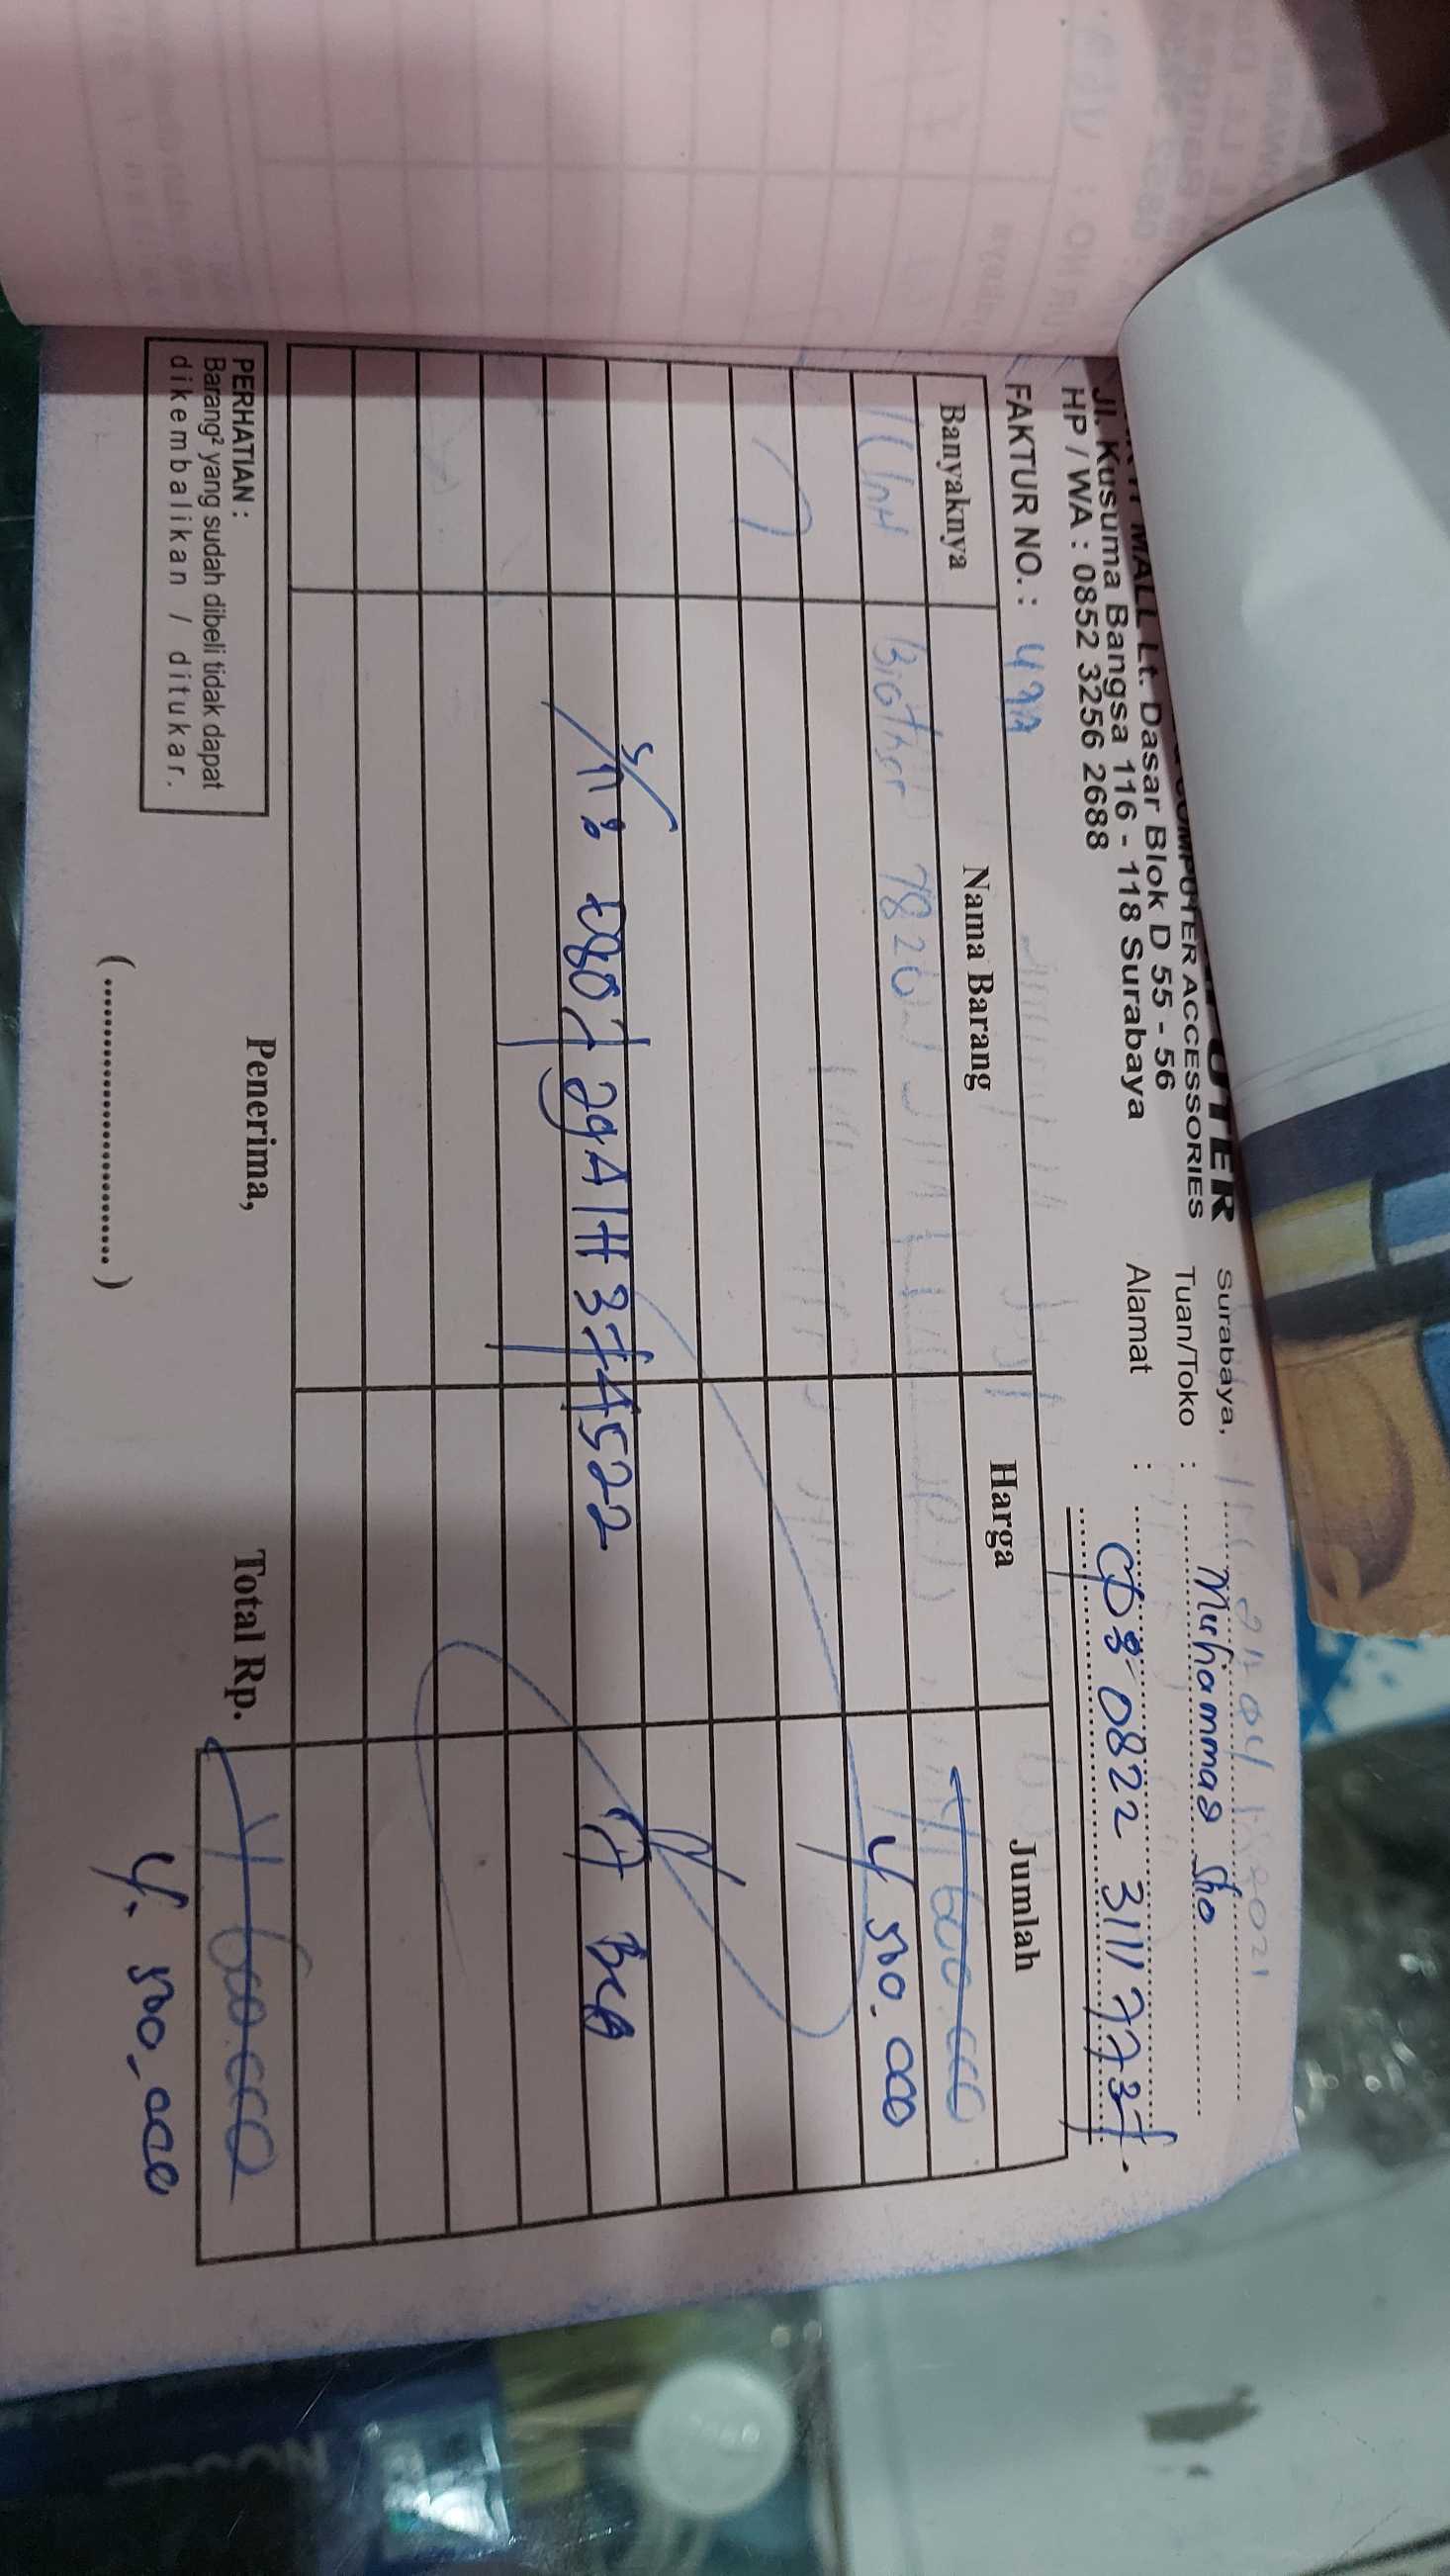 Surabaya, 2021
COMPUTER ACCESSORIES
Tuan/Toko : Muhammad Sho
MALL Lt. Dasar Blok D 55 - 56
Alamat : 0822 3111 7737.
Jl. Kusuma Bangsa 116 - 118 Surabaya
HP / WA : 0852 3256 2688
FAKTUR NO. :
Banyaknya Nama Barang Harga Jumlah
1 Unit Brother T820 4 600.000
4 500.000
S/n : E80729A1H374522 BCA
PERHATIAN :
Barang² yang sudah dibeli tidak dapat
dikembalikan / ditukar.
Penerima,
Total Rp. 4 600.000
4. 500,000
(........................)